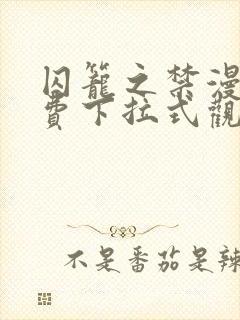 囚籠之禁漫
費下拉式觀
不是番茄是辣